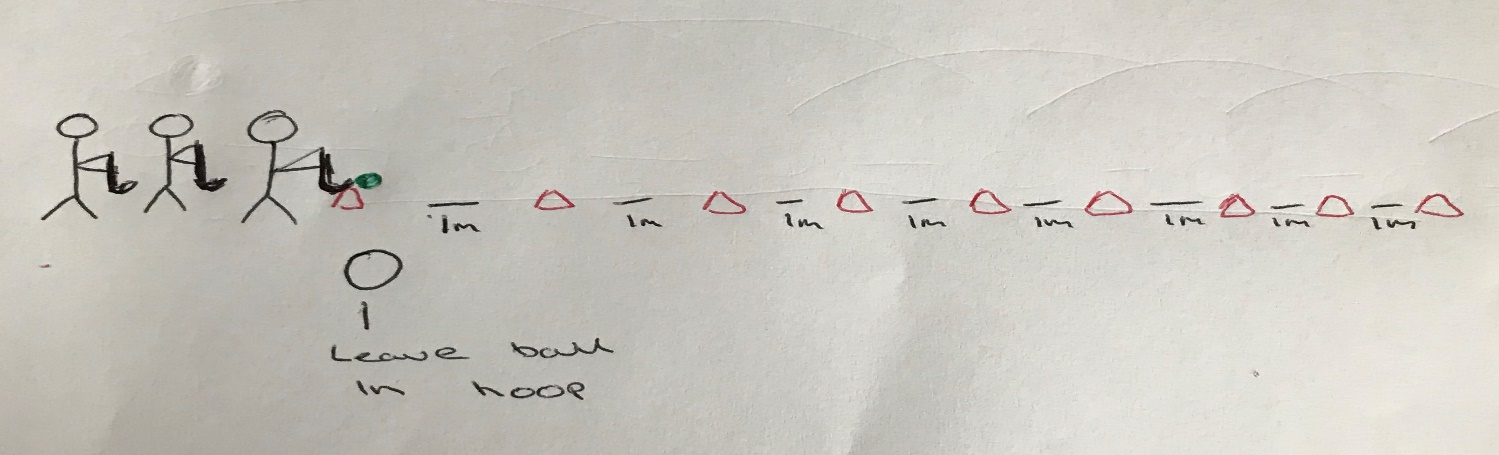 1m 1m 1m 1m 1m 1m 1m 1m
Leave ball
in hoop